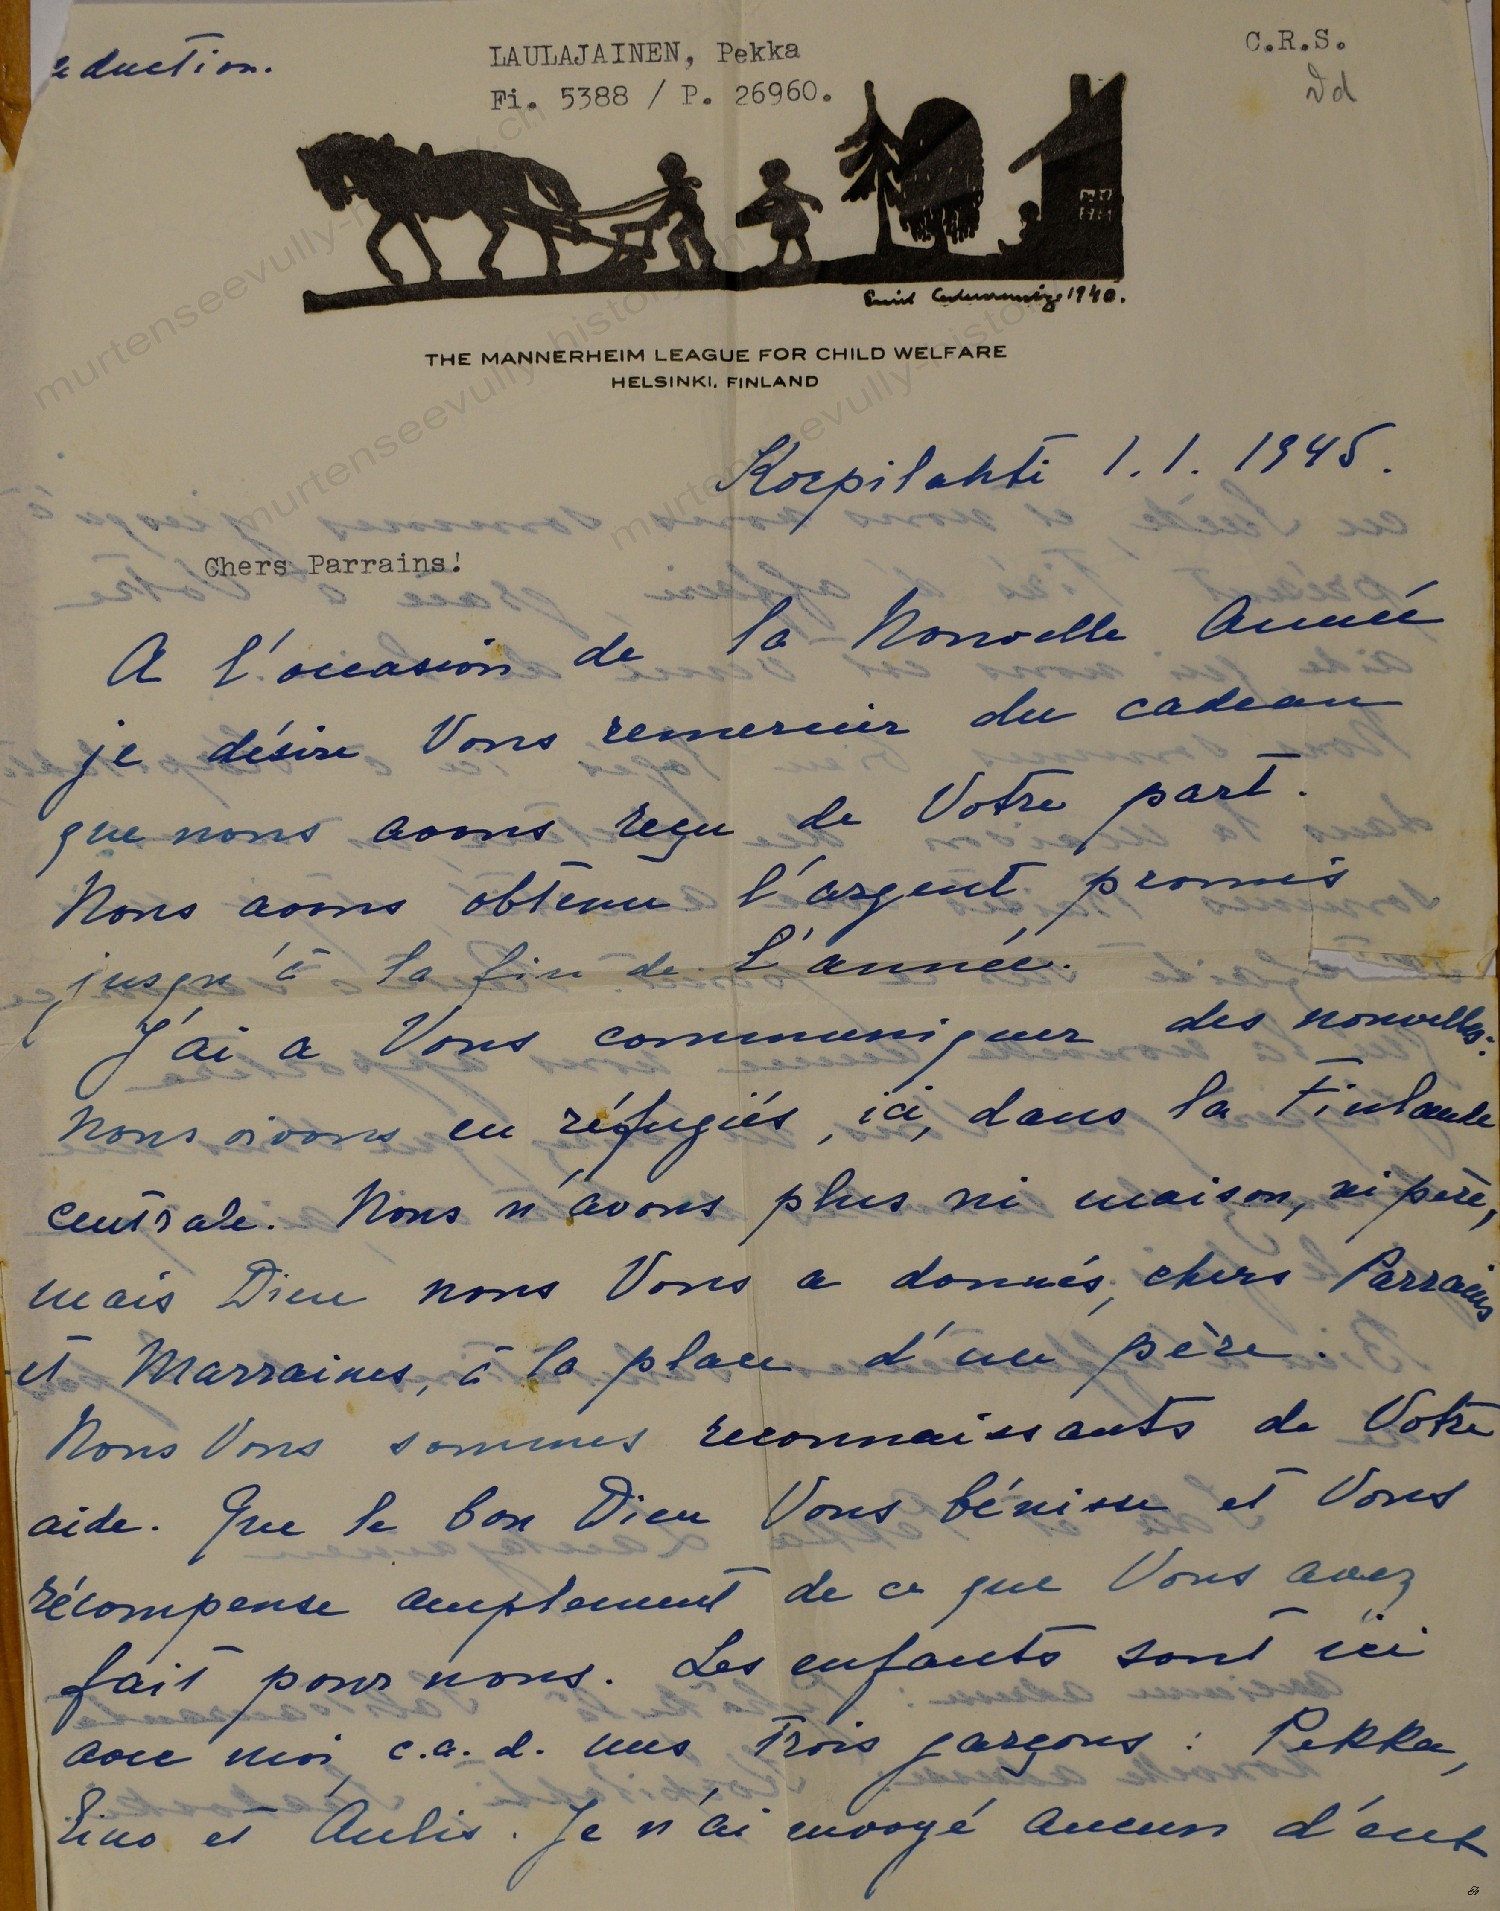 aduction.
LAULAJAINEN, Pekka
C.R.S.
Fi. 5388 / P. 26960.
1940.
THE MANNERHEIM LEAGUE FOR CHILD WELFARE
HELSINKI, FINLAND
Korpilahti 1.1.1945.
Chers Parrains!
A l'occasion de la Nouvelle Année
je désire Vous remercier du cadeau
que nous avons reçu de Votre part.
Nous avons obtenu l'argent promis
jusqu'à la fin de l'année.
J'ai a Vous communiquer des nouvelles:
Nous vivons en réfugiés, ici, dans la Finlande
centrale. Nous n'avons plus ni maison, ni père,
mais Dieu nous Vous a donnés, chers Parrains
et Marraines, à la place d'un père.
Nous Vous sommes reconnaissants de Votre
aide. Que le bon Dieu Vous bénisse et Vous
récompense amplement de ce que Vous avez
fait pour nous. Les enfants sont ici
avec moi, c.a.d. mes trois garçons: Pekka,
Eino et Aulis. Je n'ai envoyé aucun d'eux
murtenseevully-history.ch
murtenseevully-history.ch
murtenseevully-history.ch